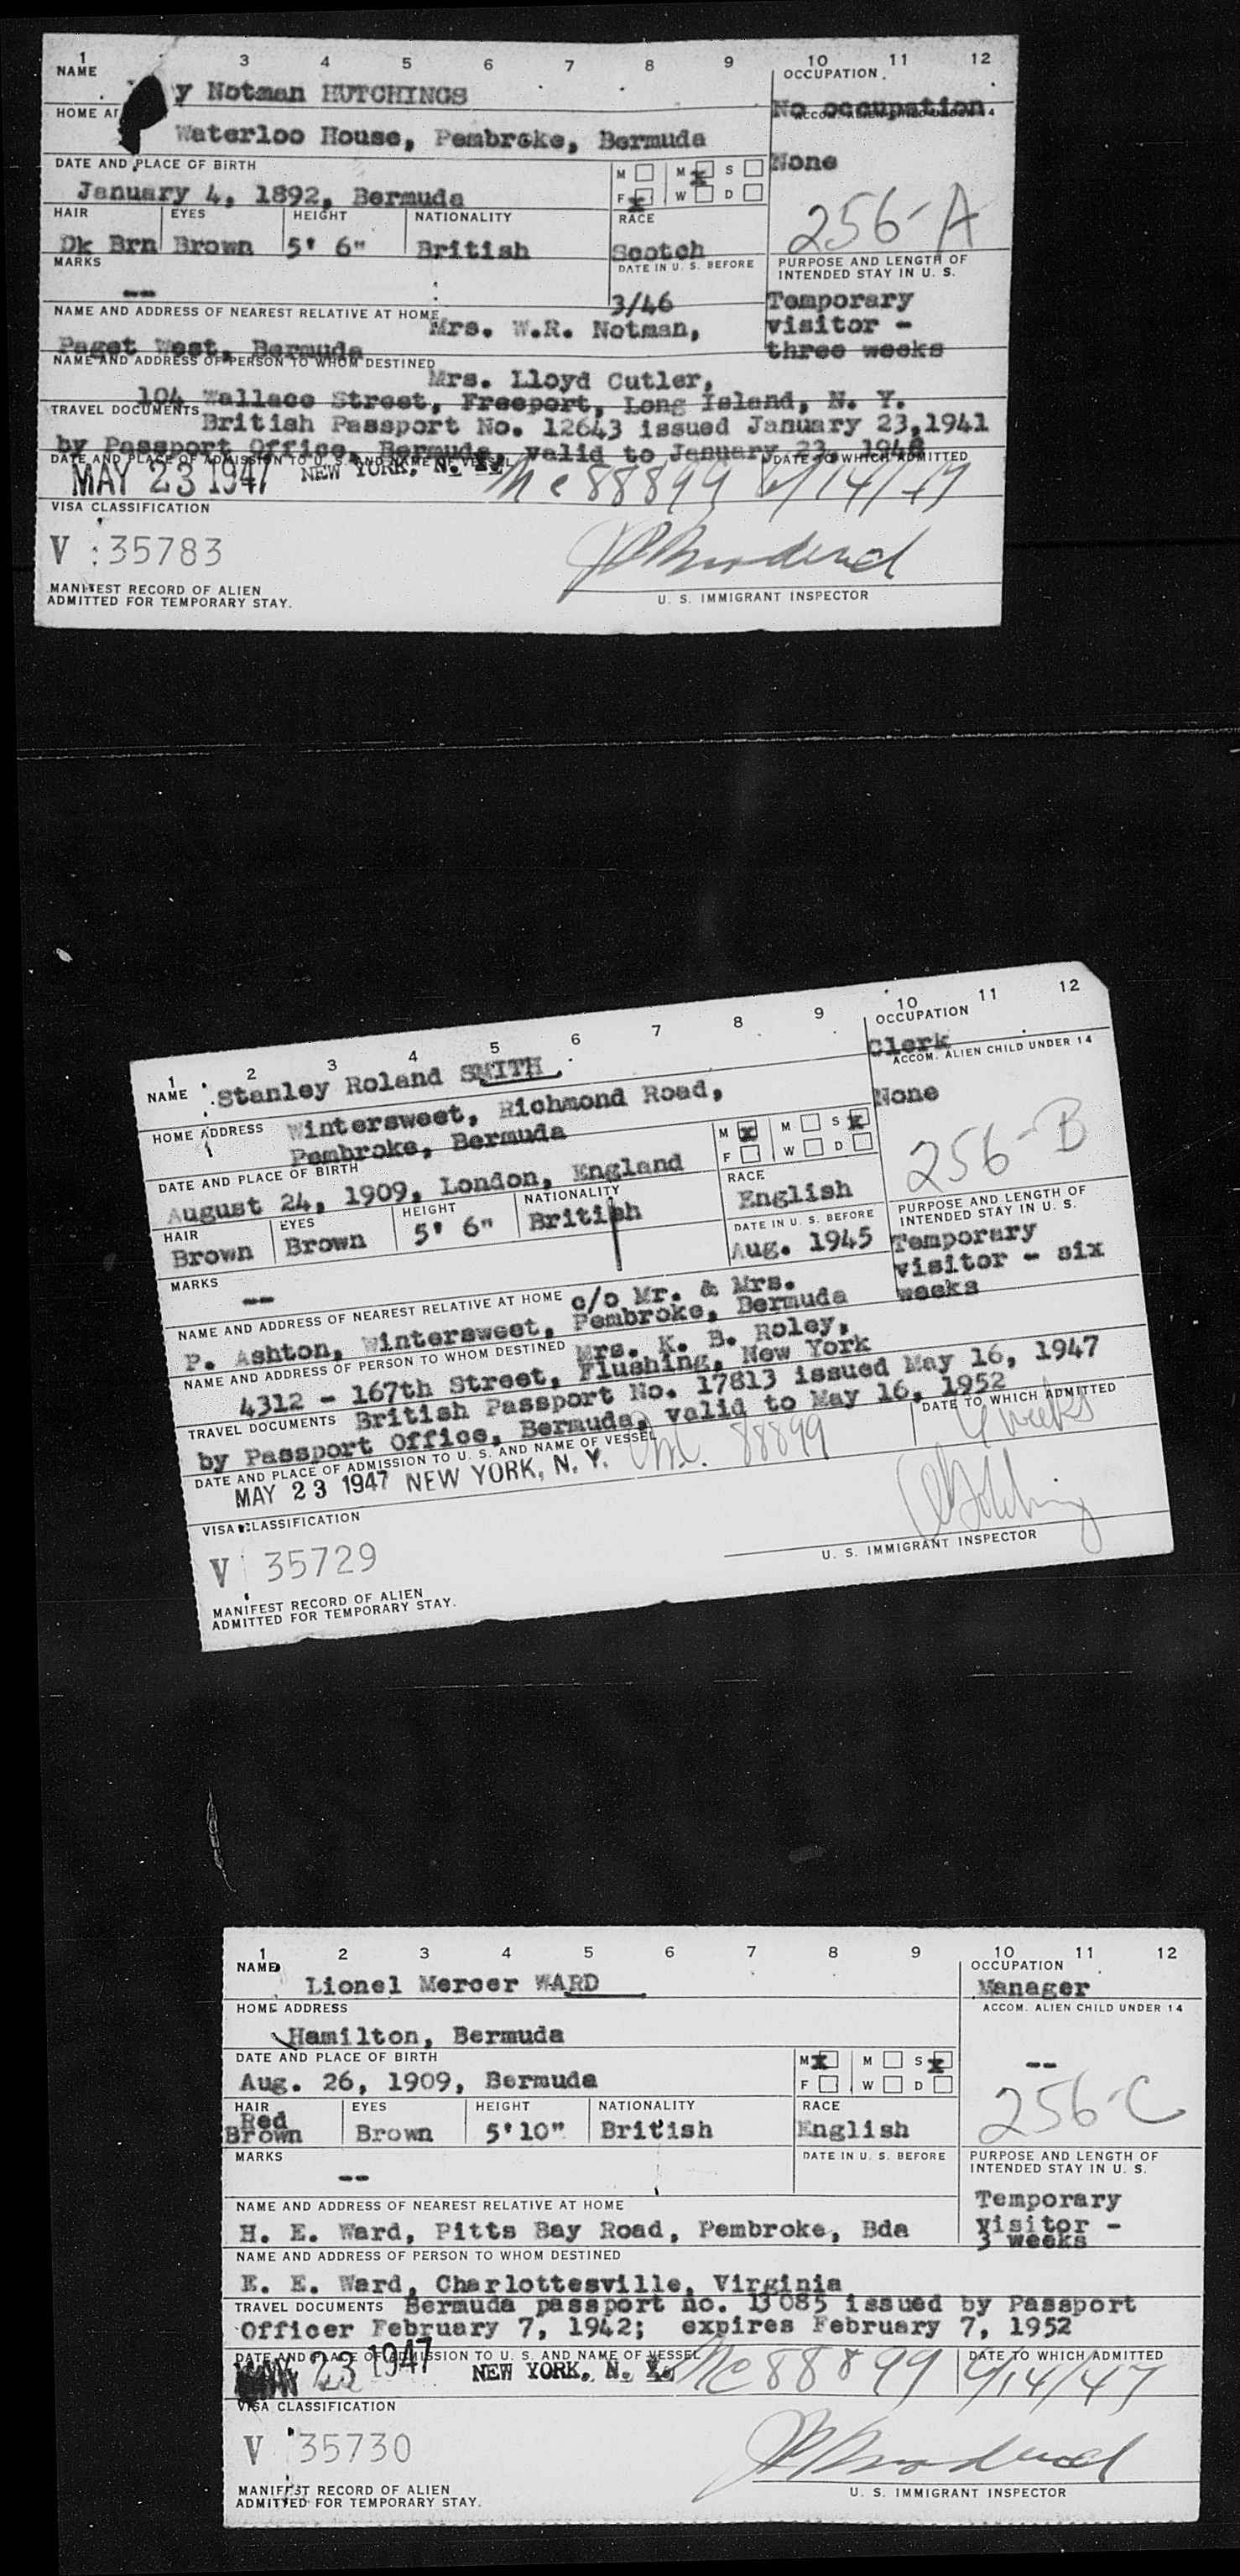 1 3 4 5 6 7 8 9 10 11 12
NAME OCCUPATION
y Notman HUTCHINGS
No occupation
HOME A ACCOM. ALIEN CHILD UNDER 14
Waterloo House, Pembroke, Bermuda
None
DATE AND PLACE OF BIRTH M M x S
January 4, 1892, Bermuda F x W D
256-A
HAIR EYES HEIGHT NATIONALITY RACE
Dk Brn Brown 5' 6" British Scotch
MARKS DATE IN U. S. BEFORE PURPOSE AND LENGTH OF
INTENDED STAY IN U. S.
-- 3/46 Temporary
NAME AND ADDRESS OF NEAREST RELATIVE AT HOME Mrs. W.R. Notman, visitor -
Paget West, Bermuda three weeks
NAME AND ADDRESS OF PERSON TO WHOM DESTINED Mrs. Lloyd Cutler,
104 Wallace Street, Freeport, Long Island, N. Y.
TRAVEL DOCUMENTS British Passport No. 12643 issued January 23,1941
by Passport Office, Bermuda, valid to January 23, 1948
DATE AND PLACE OF ADMISSION TO U. S. AND NAME OF VESSEL DATE TO WHICH ADMITTED
MAY 23 1947 NEW YORK, N. Y. nc 88899 6/14/47
VISA CLASSIFICATION
V 35783
MANIFEST RECORD OF ALIEN
ADMITTED FOR TEMPORARY STAY. U. S. IMMIGRANT INSPECTOR
1 2 3 4 5 6 7 8 9 10 11 12
NAME Stanley Roland SMITH OCCUPATION
Clerk
HOME ADDRESS Wintersweet, Richmond Road, ACCOM. ALIEN CHILD UNDER 14
Pembroke, Bermuda None
DATE AND PLACE OF BIRTH M x M S x
August 24, 1909, London, England F W D
256-B
HAIR EYES HEIGHT NATIONALITY RACE
Brown Brown 5' 6" British English
MARKS DATE IN U. S. BEFORE PURPOSE AND LENGTH OF
INTENDED STAY IN U. S.
-- Aug. 1945 Temporary
visitor - six
weeks
NAME AND ADDRESS OF NEAREST RELATIVE AT HOME c/o Mr. & Mrs.
P. Ashton, Wintersweet, Pembroke, Bermuda
NAME AND ADDRESS OF PERSON TO WHOM DESTINED Mrs. K. B. Roley,
4312 - 167th Street, Flushing, New York
TRAVEL DOCUMENTS British Passport No. 17813 issued May 16, 1947
by Passport Office, Bermuda, valid to May 16, 1952
DATE AND PLACE OF ADMISSION TO U. S. AND NAME OF VESSEL DATE TO WHICH ADMITTED
MAY 23 1947 NEW YORK, N. Y. nc. 88899 weeks
VISA CLASSIFICATION
V 35729
MANIFEST RECORD OF ALIEN
ADMITTED FOR TEMPORARY STAY. U. S. IMMIGRANT INSPECTOR
1 2 3 4 5 6 7 8 9 10 11 12
NAME OCCUPATION
Lionel Mercer WARD Manager
HOME ADDRESS ACCOM. ALIEN CHILD UNDER 14
Hamilton, Bermuda
DATE AND PLACE OF BIRTH M x M S x --
Aug. 26, 1909, Bermuda F W D
256-C
HAIR EYES HEIGHT NATIONALITY RACE
Red
Brown Brown 5'10" British English
MARKS DATE IN U. S. BEFORE PURPOSE AND LENGTH OF
INTENDED STAY IN U. S.
--
NAME AND ADDRESS OF NEAREST RELATIVE AT HOME Temporary
H. E. Ward, Pitts Bay Road, Pembroke, Bda visitor -
3 weeks
NAME AND ADDRESS OF PERSON TO WHOM DESTINED
E. E. Ward, Charlottesville, Virginia
TRAVEL DOCUMENTS Bermuda passport no. 13085 issued by Passport
Officer February 7, 1942; expires February 7, 1952
DATE AND PLACE OF ADMISSION TO U. S. AND NAME OF VESSEL DATE TO WHICH ADMITTED
23 1947 NEW YORK, N. Y. nc 88899 6/14/47
VISA CLASSIFICATION
V 35730
MANIFEST RECORD OF ALIEN
ADMITTED FOR TEMPORARY STAY. U. S. IMMIGRANT INSPECTOR